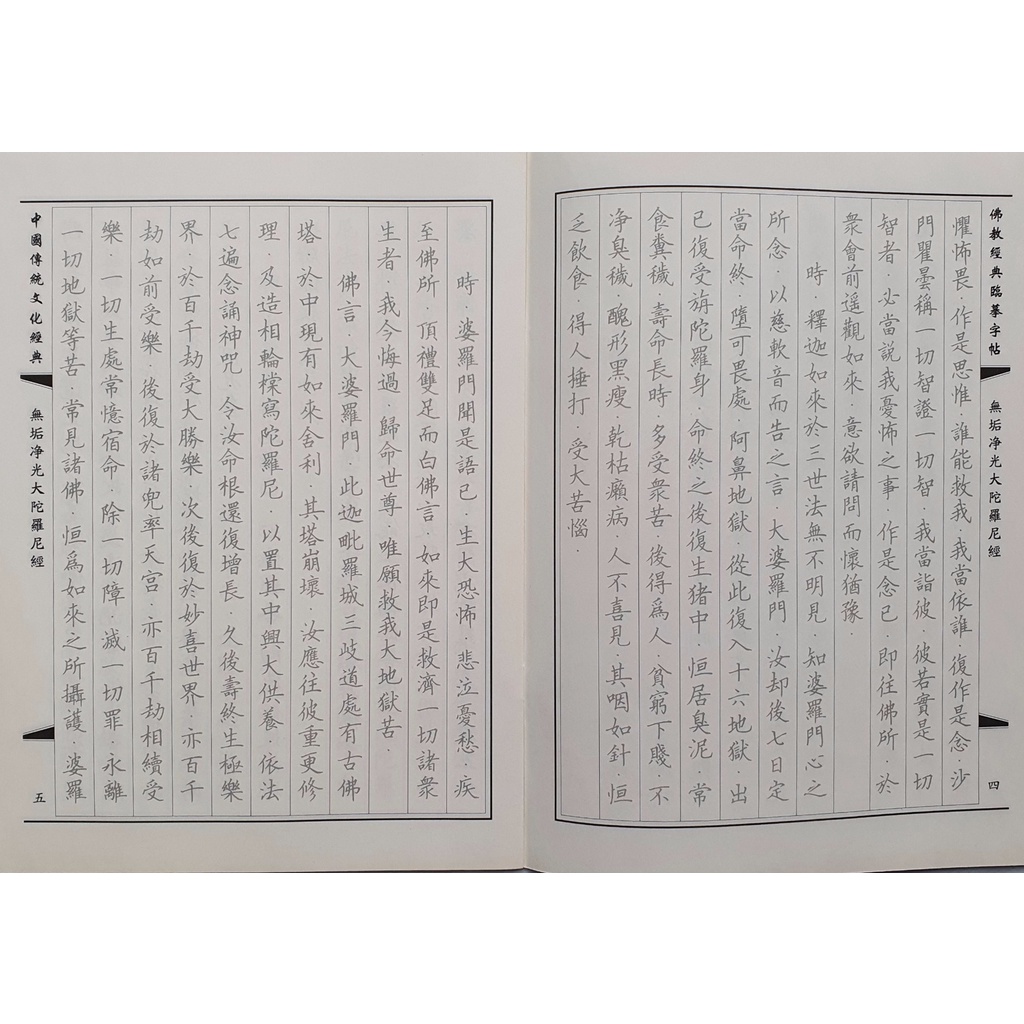 佛教經典臨摹字帖
無垢净光大陀羅尼經
四
懼怖畏．作是思惟．誰能救我．我當依誰．復作是念．沙
門瞿曇稱一切智證一切智．我當詣彼．彼若實是一切
智者．必當說我憂怖之事．作是念已．即往佛所．於
衆會前遥觀如來．意欲請問而懷猶豫．
時．釋迦如來於三世法無不明見．知婆羅門心之
所念．以慈軟音而告之言．大婆羅門．汝却後七日定
當命終．墮可畏處．阿鼻地獄．從此復入十六地獄．出
已復受旃陀羅身．命終之後復生猪中．恒居臭泥．常
食糞穢．壽命長時．多受衆苦．後得爲人．貧窮下賤．不
净臭穢．醜形黑瘦．乾枯癩病．人不喜見．其咽如針．恒
乏飲食．得人捶打．受大苦惱．
時．婆羅門聞是語已．生大恐怖．悲泣憂愁．疾
至佛所．頂禮雙足而白佛言．如來即是救濟一切諸衆
生者．我今悔過．歸命世尊．唯願救我大地獄苦．
佛言．大婆羅門．此迦毗羅城三岐道處有古佛
塔．於中現有如來舍利．其塔崩壞．汝應往彼重更修
理．及造相輪橖寫陀羅尼．以置其中興大供養．依法
七遍念誦神咒．令汝命根還復增長．久後壽終生極樂
界．於百千劫受大勝樂．次後復於妙喜世界．亦百千
劫如前受樂．後復於諸兜率天宫．亦百千劫相續受
樂．一切生處常憶宿命．除一切障．滅一切罪．永離
一切地獄等苦．常見諸佛．恒爲如來之所攝護．婆羅
中國傳統文化經典
無垢净光大陀羅尼經
五